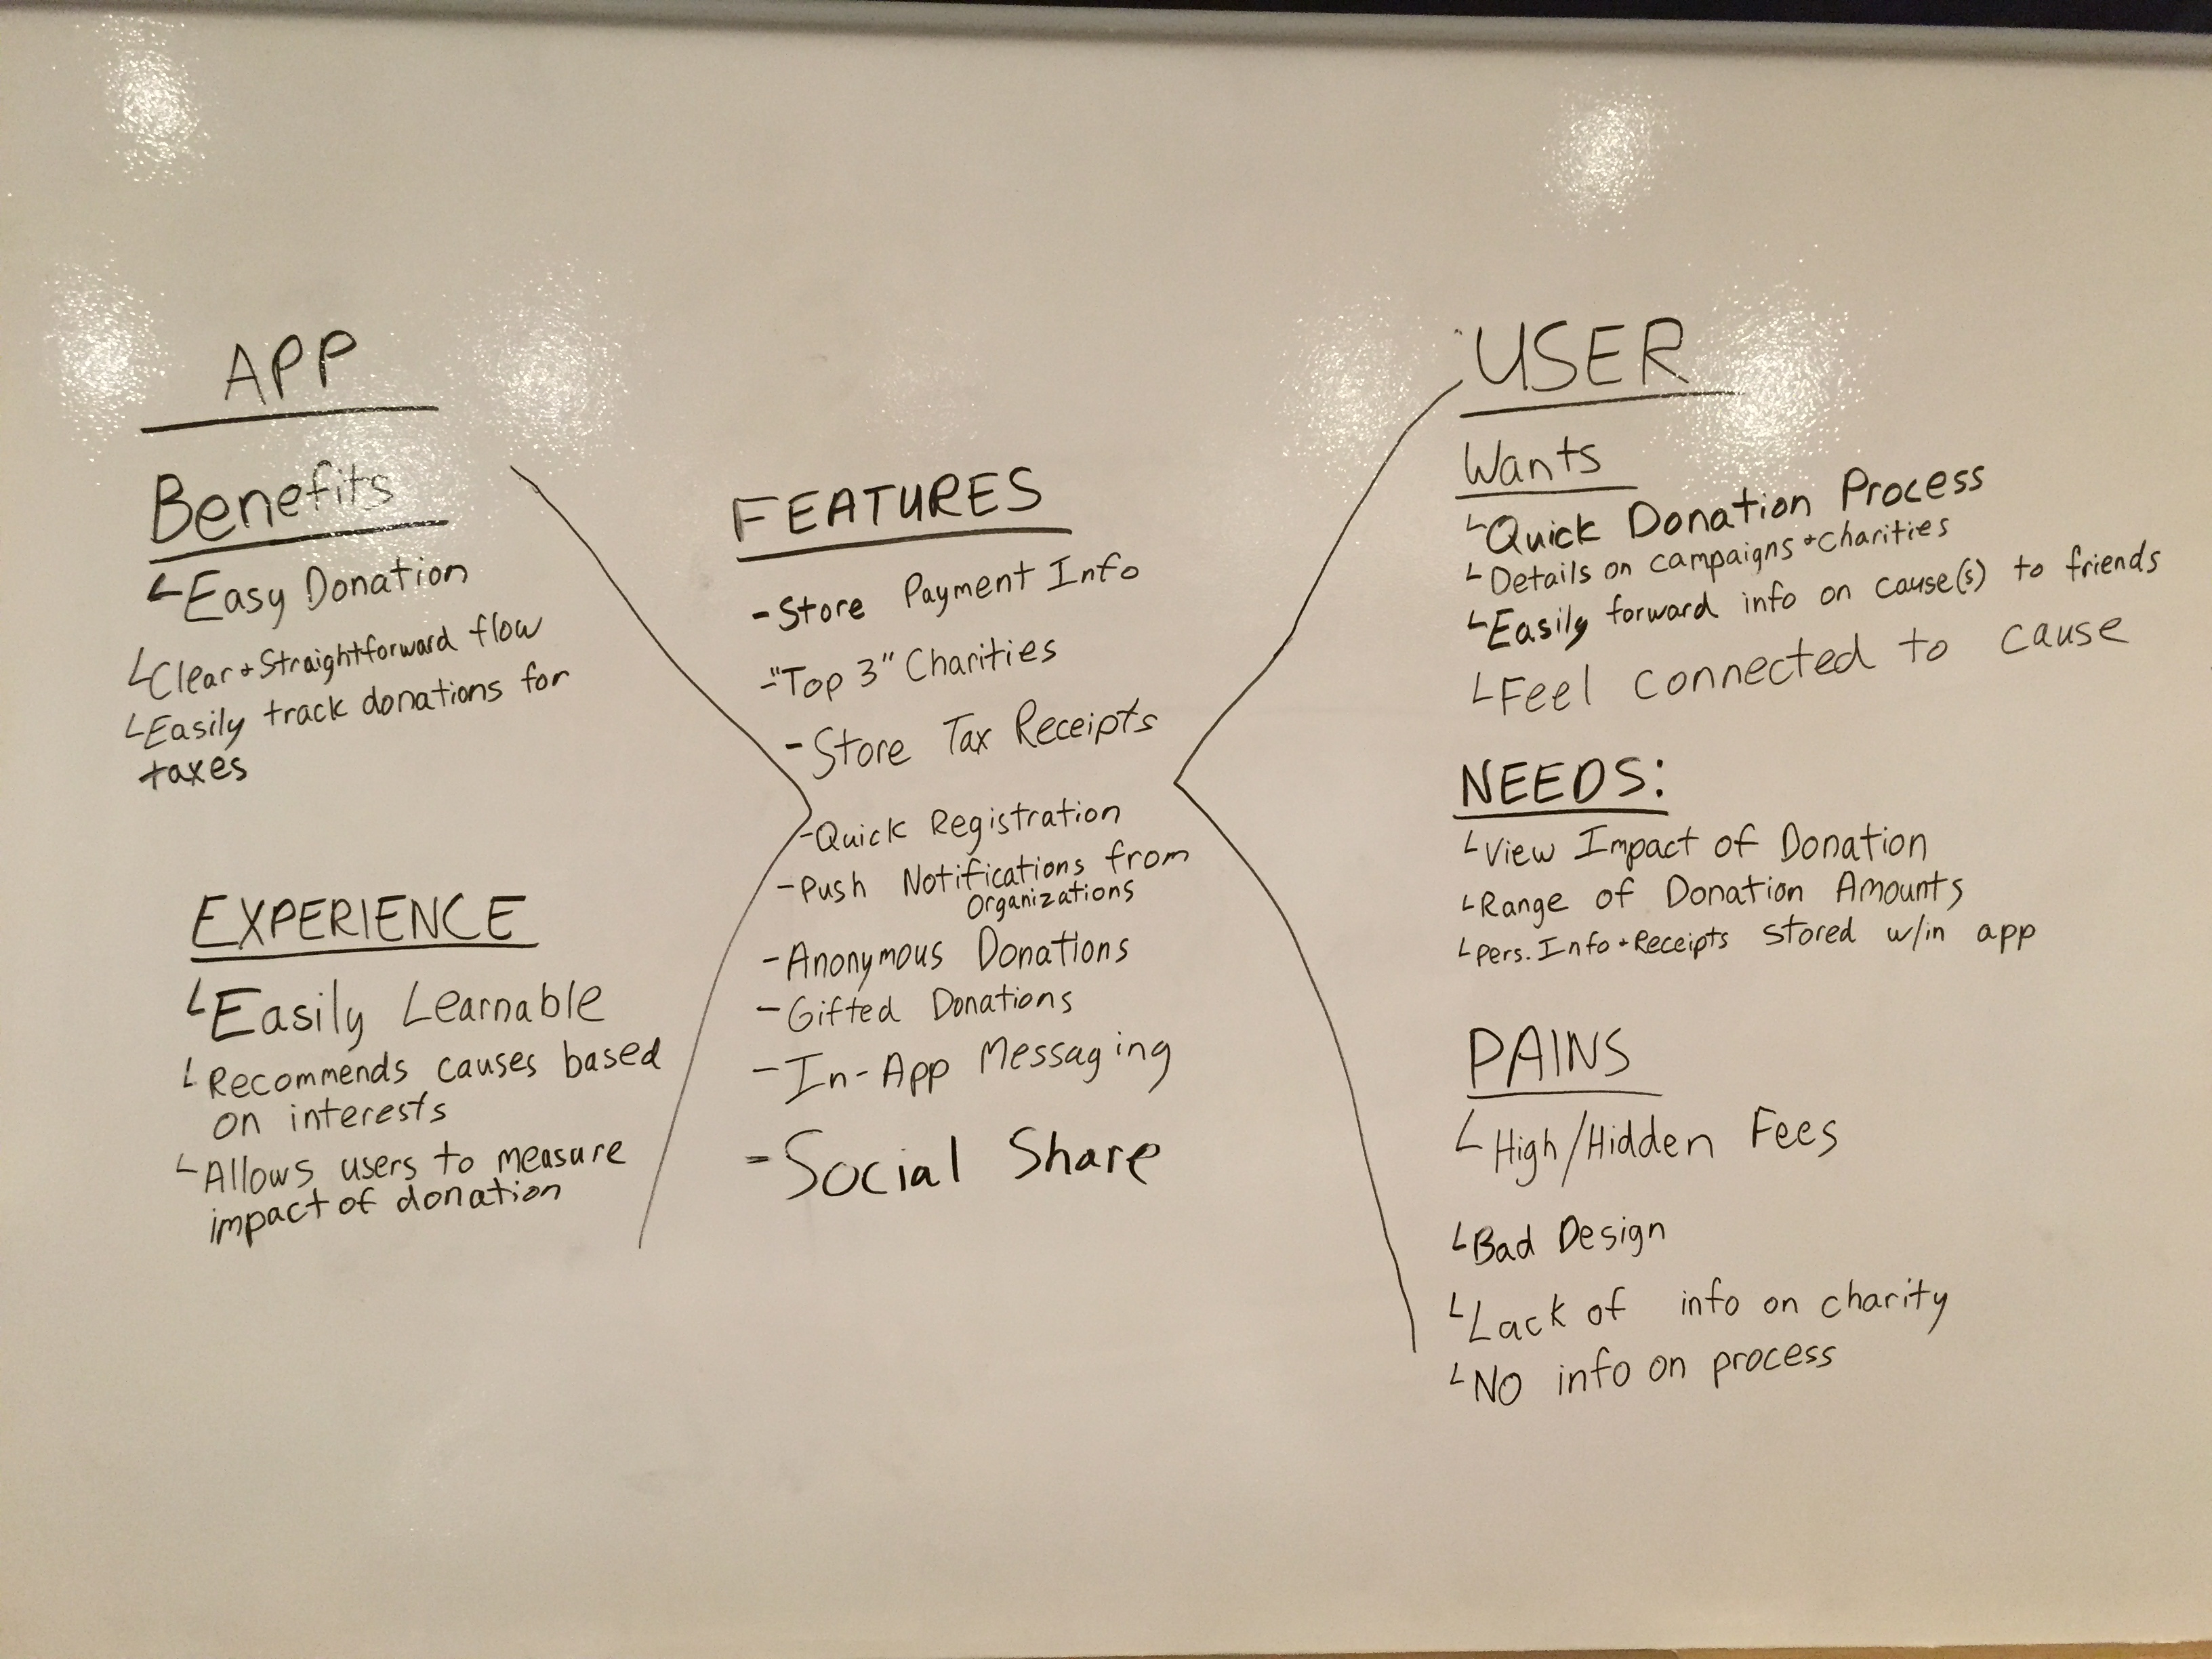 APP
Benefits
Easy Donation
Clear + Straightforward flow
Easily track donations for
taxes
EXPERIENCE
Easily Learnable
Recommends causes based
on interests
Allows users to measure
impact of donation
FEATURES
- Store Payment Info
- "Top 3" Charities
- Store Tax Receipts
- Quick Registration
- Push Notifications from
Organizations
- Anonymous Donations
- Gifted Donations
- In-App Messaging
- Social Share
USER
Wants
Quick Donation Process
Details on campaigns + charities
Easily forward info on cause(s) to friends
Feel connected to cause
NEEDS:
View Impact of Donation
Range of Donation Amounts
Pers. Info + Receipts stored w/in app
PAINS
High/Hidden Fees
Bad Design
Lack of info on charity
No info on process